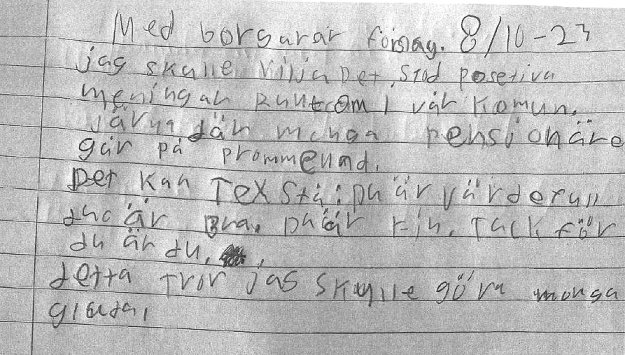 Med borgarar förslag. 8/10-23
jag skulle vilja det stod posetiva
meningar runtom i vår komun.
där monga pensionäre
går på prommenad.
Det kan Tex stå: Du är värdefull
du är Bra, Du är fin. Tack för
du är du.
detta tror jag skulle göra monga
glada,